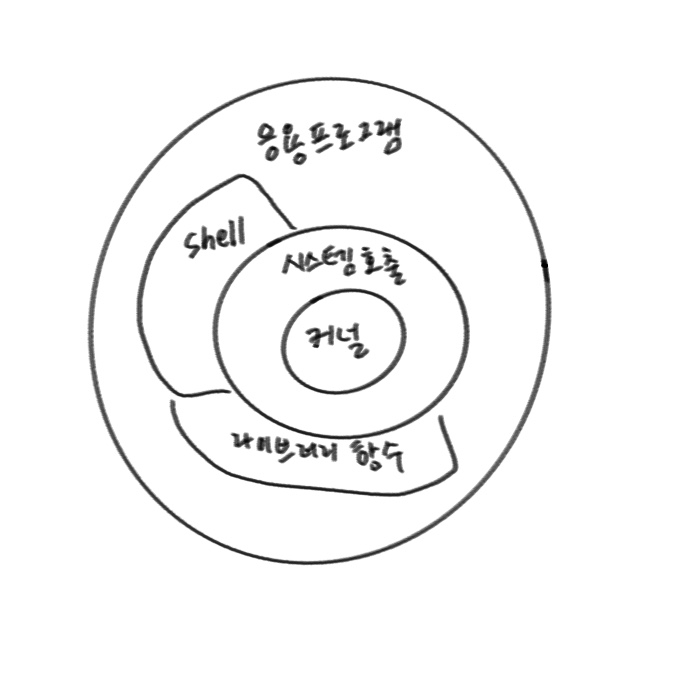 응용프로그램
shell
시스템호출
커널
라이브러리 함수